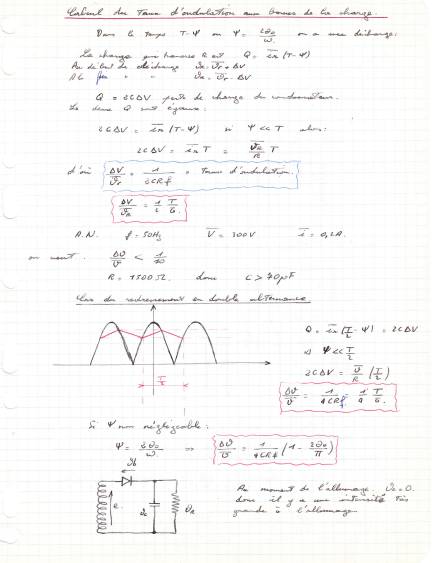 Calcul du Taux d'ondulation aux bornes de la charge.
Dans le temps T-Ψ où Ψ = 2θ₀/ω on a une décharge:
La charge qui traverse R est Q = i̅ʀ (T-Ψ)
Au début de décharge ϑc = ϑ̅r + ΔV
A la fin " " ϑc = ϑ̅r - ΔV
Q = 2CΔV perte de charge du condensateur.
Les deux Q sont égaux:
2CΔV = i̅ʀ (T-Ψ) si Ψ << T alors:
2CΔV = i̅ʀ T = ϑ̅ʀ/R T
d'où ΔV/ϑr = 1/2CRf = Taux d'ondulation.
ΔV/ϑʀ = 1/2 T/G.
A.N. f = 50Hz V̅ = 300V i̅ = 0,2A.
on veut ΔV/V < 1/10
R = 1500 Ω. donc C > 70µF
Cas du redressement en double alternance
Q = i̅ʀ (T/2 - Ψ) = 2CΔV
si Ψ << T/2
2CΔV = ϑ̅/R (T/2)
T/2
ΔV/V = 1/4CRf = 1/4 T/G.
Si Ψ non négligeable:
Ψ = 2θ₀/ω ⇒ Δϑ/ϑ = 1/4CRf (1 - 2θ₀/π)
e
ϑc
ϑʀ
Au moment de l'allumage. ϑc = 0.
donc il y a une intensité très
grande à l'allumage